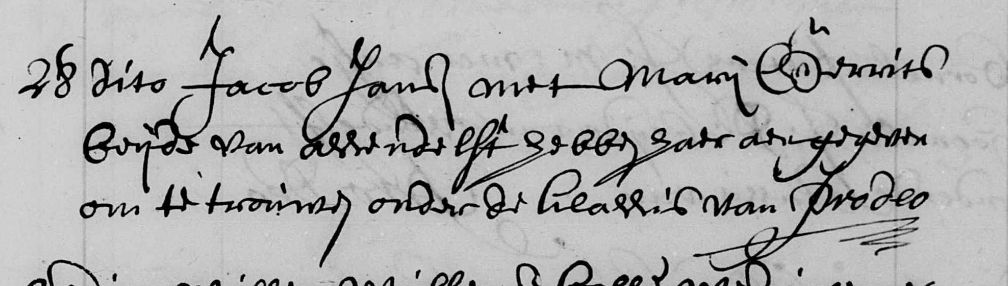 28 dito Jacob Jansz met Marij Gerrits
beijde van assendelft hebben haer aengegeven
om te trouwen onder de Classis van Prodeo